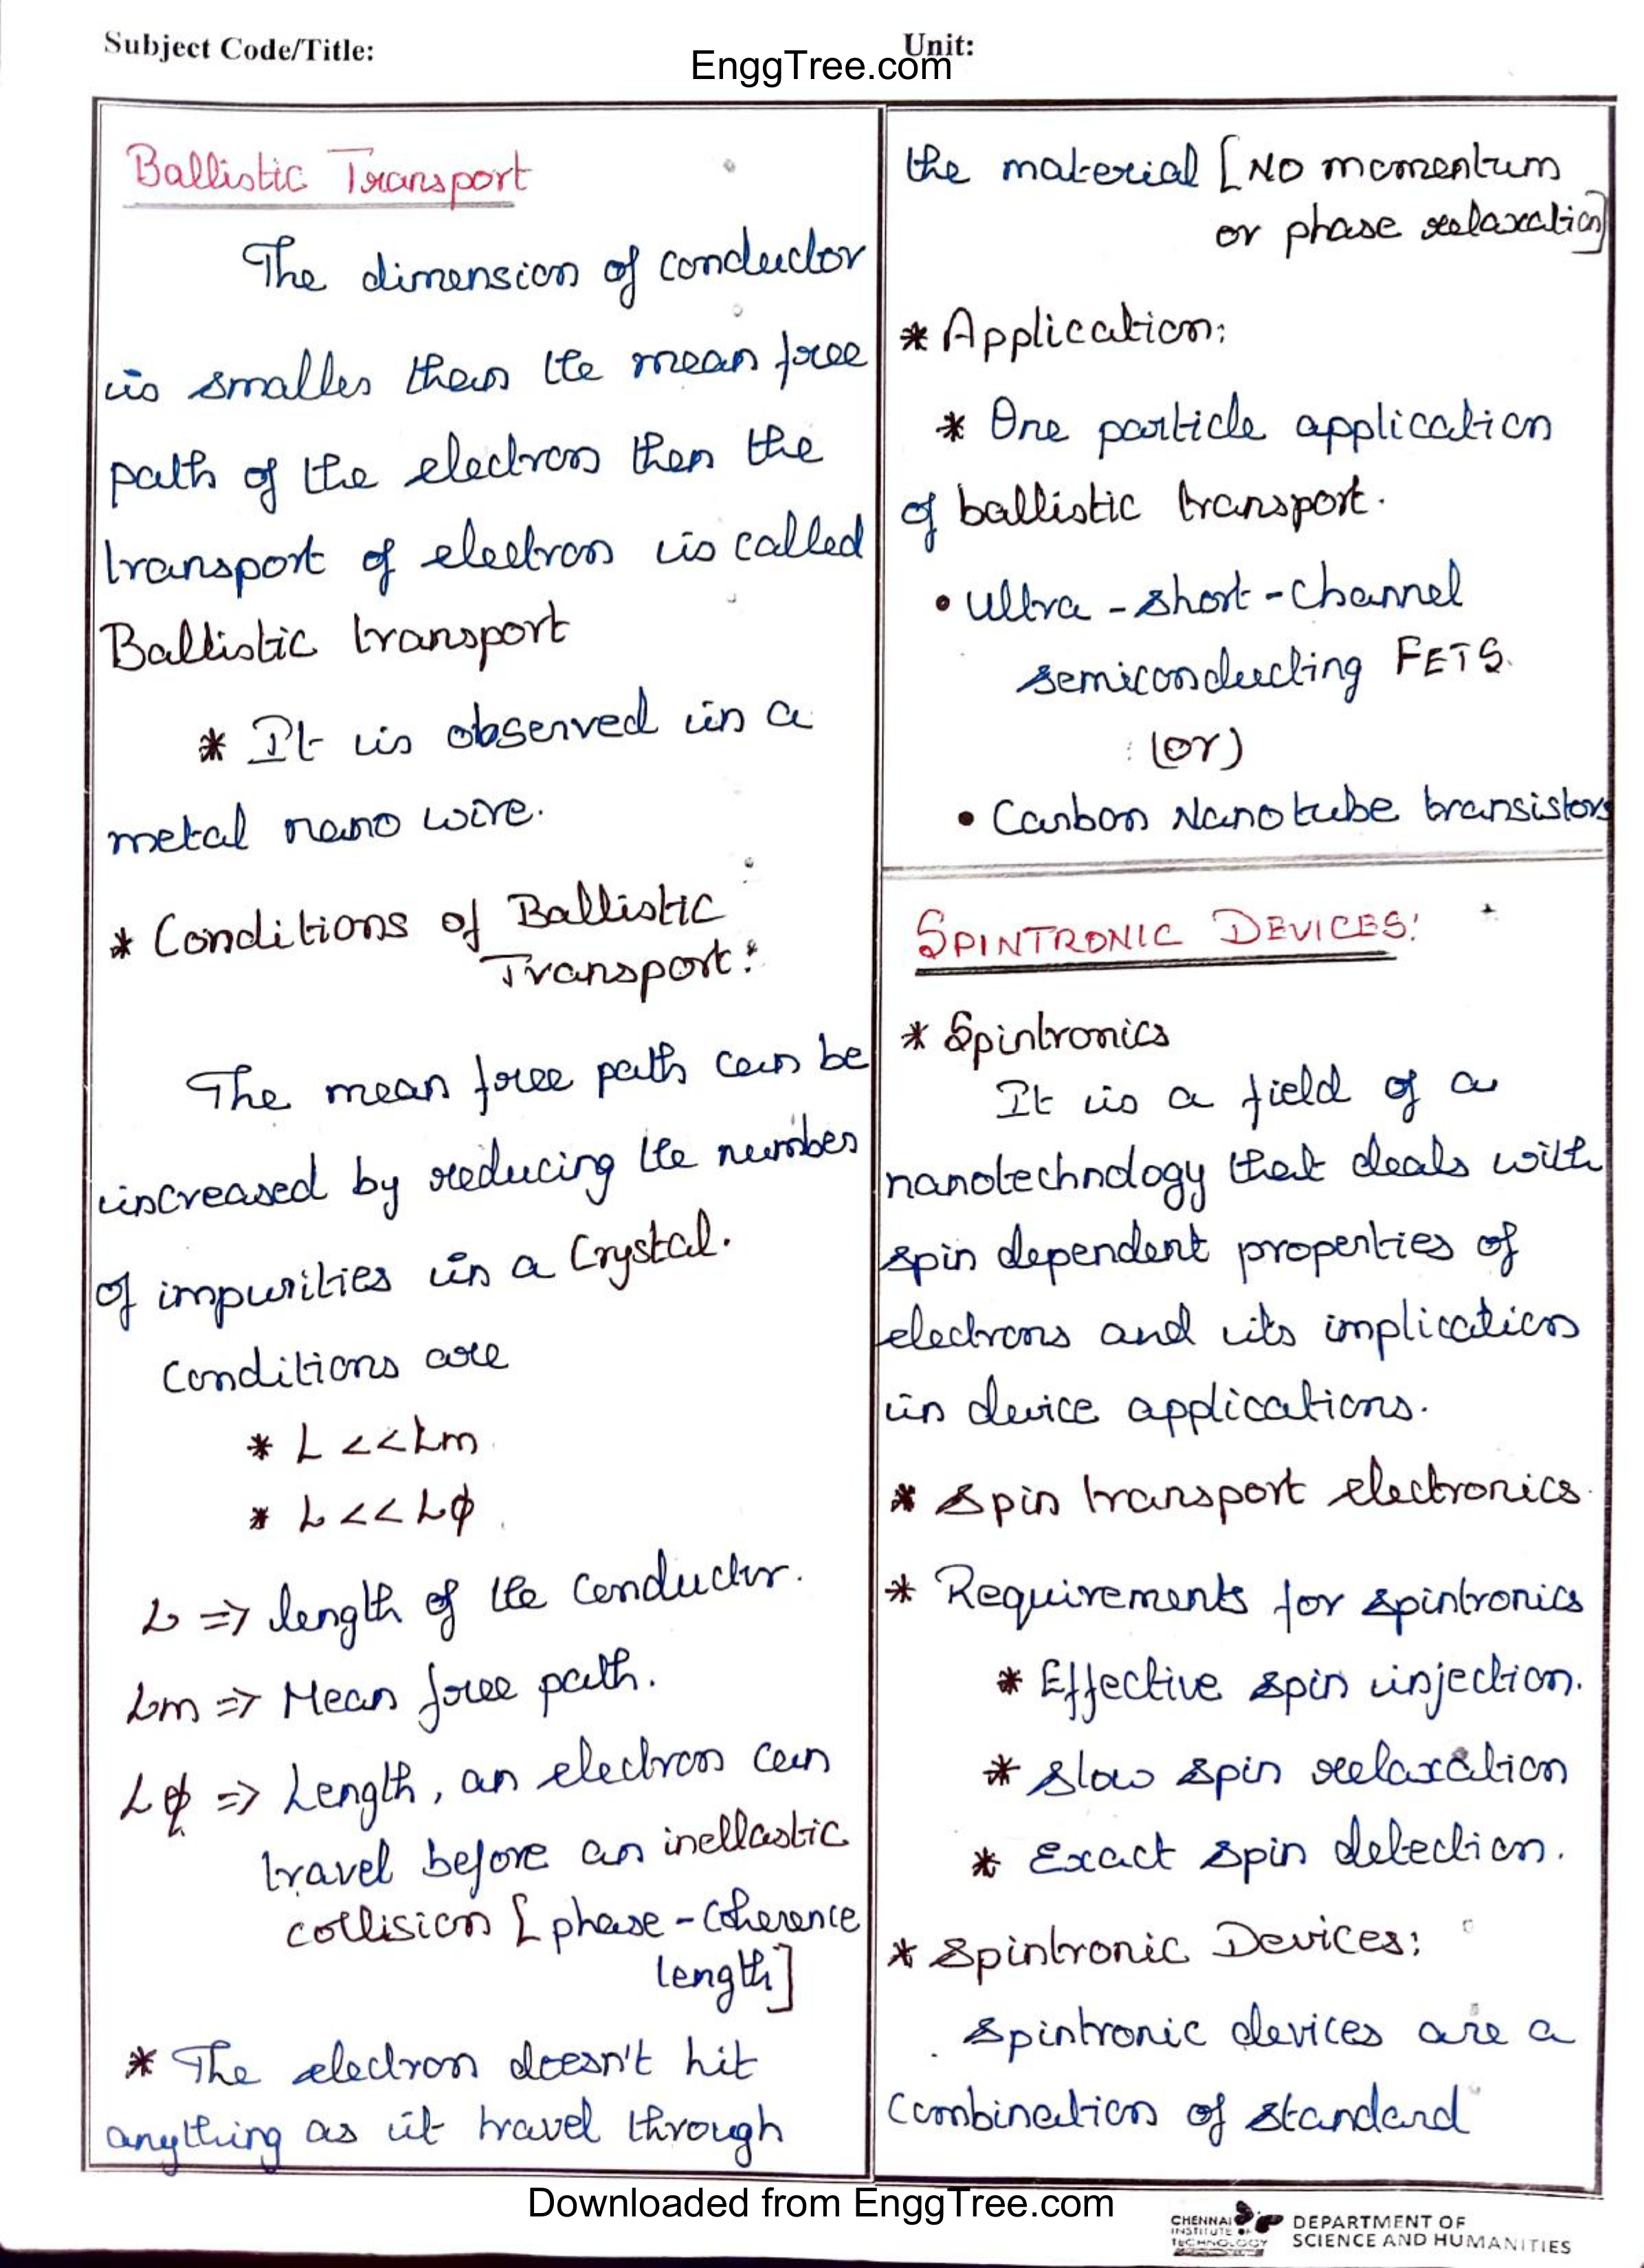 Subject Code/Title:
Unit:
EnggTree.com
Ballistic Transport
The dimension of conductor
is smaller than the mean free
path of the electron then the
transport of electron is called
Ballistic transport
* It is observed in a
metal nano wire.
* Conditions of Ballistic
Transport:
The mean free path can be
increased by reducing the number
of impurities in a Crystal.
Conditions are
* L <<Lm
* L << Lφ
L => length of the conductor.
Lm => Mean free path.
Lφ => Length, an electron can
travel before an inellastic
collision [phase-Coherence
length]
* The electron doesn't hit
anything as it travel through
the material [NO momentum
or phase relaxation]
* Application:
* One particle application
of ballistic transport.
• Ultra-short-Channel
semiconducting FETS.
(or)
• Carbon Nanotube transistors
SPINTRONIC DEVICES:
* Spintronics
It is a field of a
nanotechnology that deals with
spin dependent properties of
electrons and its implication
in device applications.
* Spin transport electronics.
* Requirements for spintronics
* Effective spin injection.
* Slow spin relaxation
* Exact spin detection.
* Spintronic Devices:
Spintronic devices are a
Combination of standard
Downloaded from EnggTree.com
CHENNAI
INSTITUTE OF
TECHNOLOGY
DEPARTMENT OF
SCIENCE AND HUMANITIES